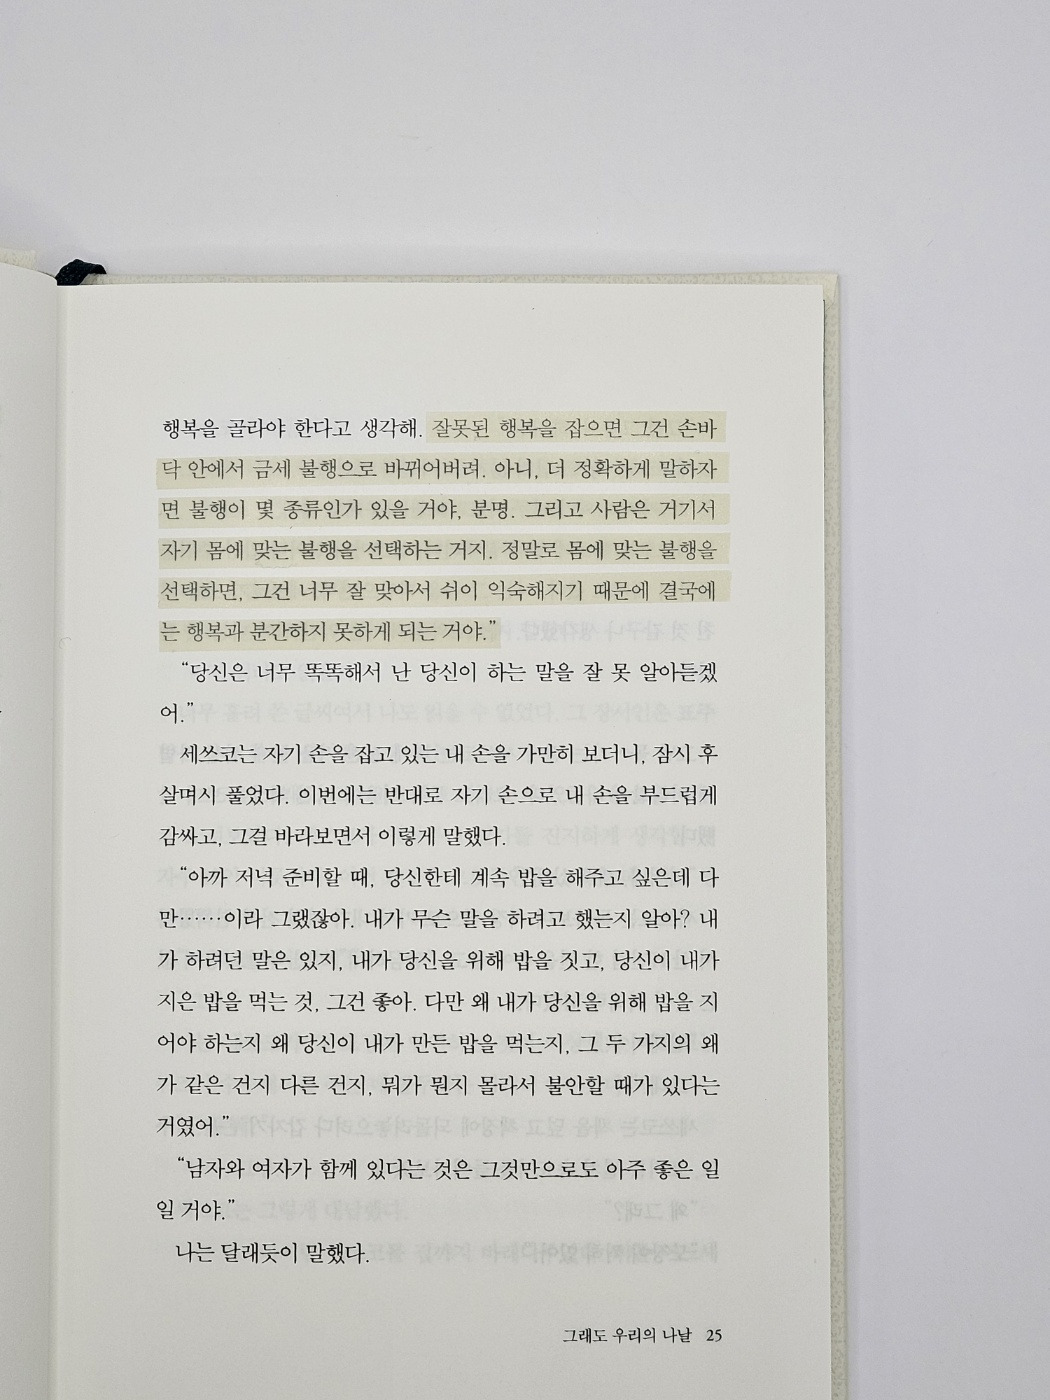 행복을 골라야 한다고 생각해. 잘못된 행복을 잡으면 그건 손바
닥 안에서 금세 불행으로 바뀌어버려. 아니, 더 정확하게 말하자
면 불행이 몇 종류인가 있을 거야, 분명. 그리고 사람은 거기서
자기 몸에 맞는 불행을 선택하는 거지. 정말로 몸에 맞는 불행을
선택하면, 그건 너무 잘 맞아서 쉬이 익숙해지기 때문에 결국에
는 행복과 분간하지 못하게 되는 거야.”
“당신은 너무 똑똑해서 난 당신이 하는 말을 잘 못 알아듣겠
어.”
세쓰코는 자기 손을 잡고 있는 내 손을 가만히 보더니, 잠시 후
살며시 풀었다. 이번에는 반대로 자기 손으로 내 손을 부드럽게
감싸고, 그걸 바라보면서 이렇게 말했다.
“아까 저녁 준비할 때, 당신한테 계속 밥을 해주고 싶은데 다
만……이라 그랬잖아. 내가 무슨 말을 하려고 했는지 알아? 내
가 하려던 말은 있지, 내가 당신을 위해 밥을 짓고, 당신이 내가
지은 밥을 먹는 것, 그건 좋아. 다만 왜 내가 당신을 위해 밥을 지
어야 하는지 왜 당신이 내가 만든 밥을 먹는지, 그 두 가지의 왜
가 같은 건지 다른 건지, 뭐가 뭔지 몰라서 불안할 때가 있다는
거였어.”
“남자와 여자가 함께 있다는 것은 그것만으로도 아주 좋은 일
일 거야.”
나는 달래듯이 말했다.
그래도 우리의 나날 25